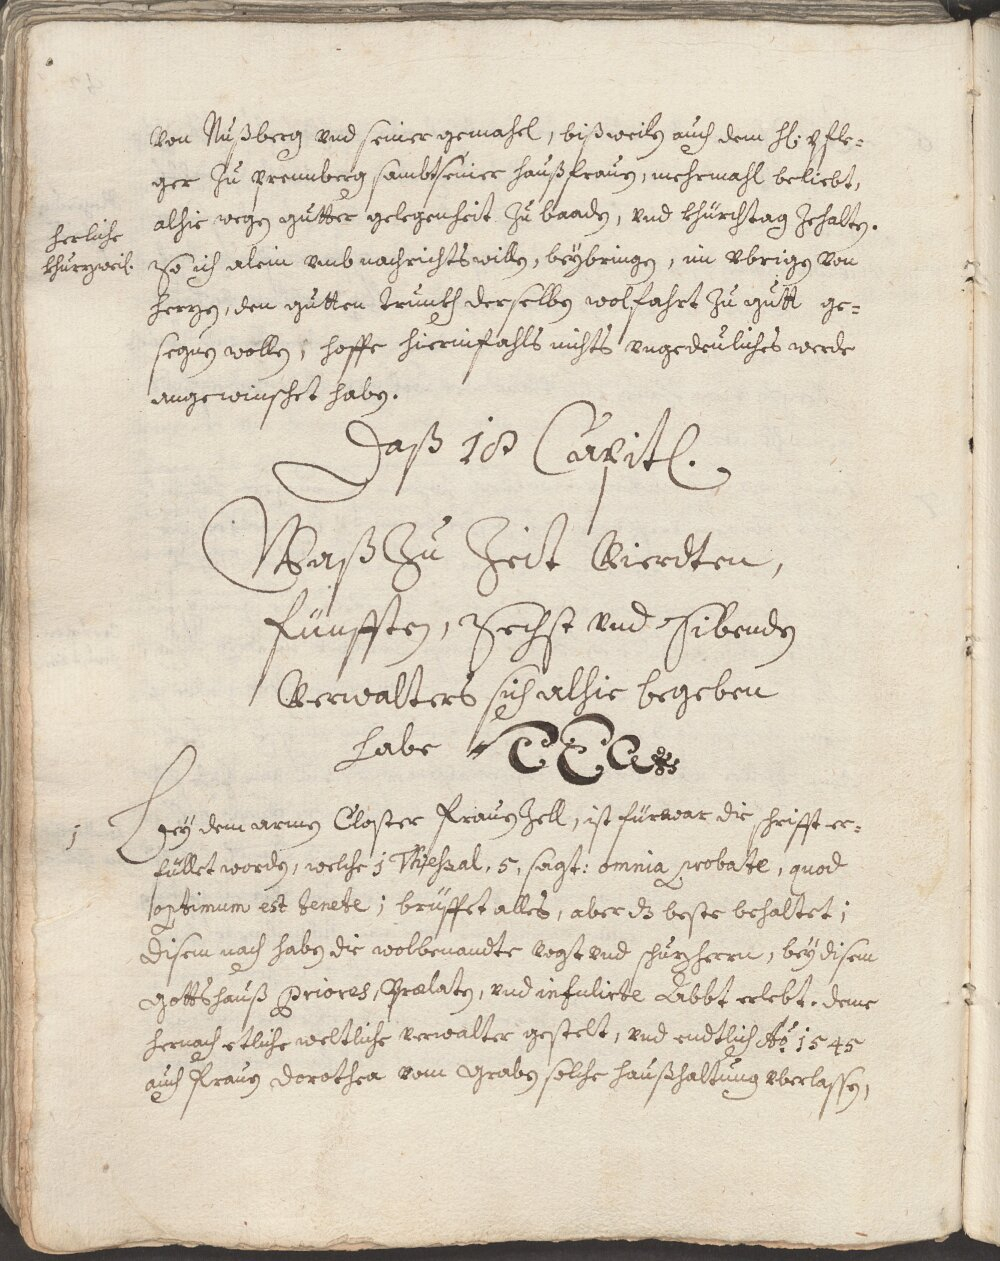 von Nußberg vnd seiner gemahel, bißweiln auch dem hl: pfle-
ger zu prennberg sambt seiner haußfrauen, mehrmahl beliebt,
alhie wegen gutter gelegenheit zu baaden, vnd khürchtag zehalten.
herliche
khurzweil.
So ich alein vmb nachrichts willen, beybringen, im vbrigen von
herzen, den gutten trunkh derselben wolfahrt zu gutt ge-
segnen wollen, hoffe hierinfahls nichts vngedeuliches werde
angewinschet haben.
Daß 18 Capitl.
Waß zu Zeit Vierdten,
fünfften, Sechst vnd Sibenden
Verwalters sich alhie begeben
habe
1
Bey dem armen Closter Frauenzell, ist fürwar die schrifft er-
füllet worden, welche 1 Thessal. 5, sagt: omnia probate, quod
optimum est tenete; brüffet alles, aber dz beste behaltet;
Disem nach haben die wolbenandte vogt vnd schuzherrn, bey disem
Gottshauß Priores, Prælaten, vnd infulirte Äbbt erlebt. deme
hernach etliche weltliche verwalter gestelt, vnd endtlich Ao: 1545
auch Frauen Dorothea vom Graben solche haußhaltung vberlassen,